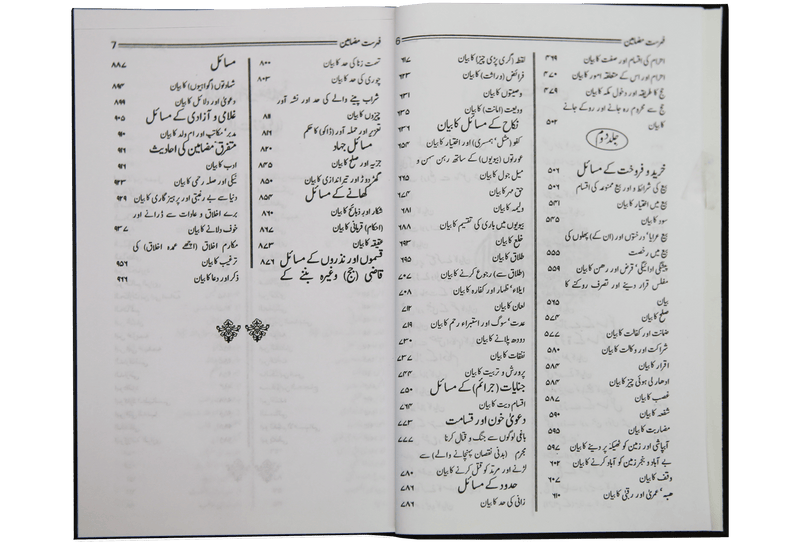 فہرست مضامین
6
احرام کی اقسام اور صفت کا بیان ۴۶۹
احرام اور اس کے متعلقہ امور کا بیان ۴۷۰
حج کا طریقہ اور دخول مکہ کا بیان ۴۷۹
حج سے محروم رہ جانے اور روکے جانے
کا بیان ۵۰۴
جلد دوم
خرید و فروخت کے مسائل ۵۰۶
بیع کی شرائط و اور بیع ممنوعہ کی اقسام ۵۰۶
بیع میں اختیار کا بیان ۵۳۱
سود کا بیان ۵۳۵
بیع عرایا‘ درختوں اور (ان کے) پھلوں کی
بیع میں رخصت ۵۵۵
پیشگی ادائیگی‘ قرض اور رھن کا بیان ۵۵۹
مفلس قرار دینے اور تصرف روکنے کا
بیان ۵۶۵
صلح کا بیان ۵۷۴
ضمانت اور کفالت کا بیان ۵۷۷
شراکت اور وکالت کا بیان ۵۸۰
اقرار کا بیان ۵۸۴
ادھار لی ہوئی چیز کا بیان ۵۸۴
غصب کا بیان ۵۸۷
شفعہ کا بیان ۵۹۰
مضاربت کا بیان ۵۹۵
آبپاشی اور زمین کو ٹھیکہ پر دینے کا بیان ۵۹۷
بے آباد و بنجر زمین کو آباد کرنے کا بیان ۶۰۲
وقف کا بیان ۶۰۷
ھبہ‘ عمریٰ اور رقبیٰ کا بیان ۶۱۰
لقطہ (گری پڑی چیز) کا بیان ۶۱۷
فرائض (وراثت) کا بیان ۶۲۳
وصیتوں کا بیان ۶۳۱
ودیعت (امانت) کا بیان ۶۳۵
نکاح کے مسائل کا بیان ۶۳۶
کفو (مثل‘ ہمسری) اور اختیار کا بیان ۶۵۴
عورتوں (بیویوں) کے ساتھ رہن سہن و
میل جول کا بیان ۶۶۵
حق مہر کا بیان ۶۷۴
ولیمہ کا بیان ۶۸۱
بیویوں میں باری کی تقسیم کا بیان ۶۸۸
خلع کا بیان ۶۹۳
طلاق کا بیان ۶۹۵
(طلاق سے) رجوع کرنے کا بیان ۷۰۷
ایلاء‘ ظہار اور کفارہ کا بیان ۷۰۸
لعان کا بیان ۷۱۲
عدت‘ سوگ اور استبراء رحم کا بیان ۷۱۹
دودھ پلانے کا بیان ۷۳۰
نفقات کا بیان ۷۳۷
پرورش و تربیت کا بیان ۷۴۴
جنایات (جرائم) کے مسائل ۷۵۰
اقسام دیت کا بیان ۷۶۳
دعویٰ خون اور قسامت ۷۷۳
باغی لوگوں سے جنگ و قتال کرنا ۷۷۷
مجرم (بدنی نقصان پہنچانے والے) سے
لڑنے اور مرتد کو قتل کرنے کا بیان ۷۸۰
حدود کے مسائل ۷۸۶
زانی کی حد کا بیان ۷۸۶
فہرست مضامین
7
تہمت زنا کی حد کا بیان ۸۰۰
چوری کی حد کا بیان ۸۰۳
شراب پینے والے کی حد اور نشہ آور
چیزوں کا بیان ۸۱۱
تعزیر اور حملہ آور (ڈاکو) کا حکم ۸۱۷
مسائل جہاد ۸۲۰
جزیہ اور صلح کا بیان ۸۴۵
گھڑ دوڑ اور تیر اندازی کا بیان ۸۵۰
کھانے کے مسائل ۸۵۳
شکار اور ذبائح کا بیان ۸۶۰
(احکام) قربانی کا بیان ۸۶۷
عقیقہ کا بیان ۸۷۳
قسموں اور نذروں کے مسائل ۸۷۶
قاضی (جج) وغیرہ بننے کے
مسائل ۸۸۷
شہادتوں (گواہیوں) کا بیان ۸۹۳
دعویٰ اور دلائل کا بیان ۸۹۹
غلامی و آزادی کے مسائل ۹۰۵
مدبر‘ مکاتب اور ام ولد کا بیان ۹۱۰
متفرق مضامین کی احادیث ۹۱۶
ادب کا بیان ۹۱۶
نیکی اور صلہ رحمی کا بیان ۹۲۳
دنیا سے بے رغبتی اور پرہیزگاری کا بیان ۹۲۹
برے اخلاق و عادات سے ڈرانے اور
خوف دلانے کا بیان ۹۳۷
مکارم اخلاق (اچھے عمدہ اخلاق) کی
ترغیب کا بیان ۹۵۶
ذکر اور دعا کا بیان ۹۶۶